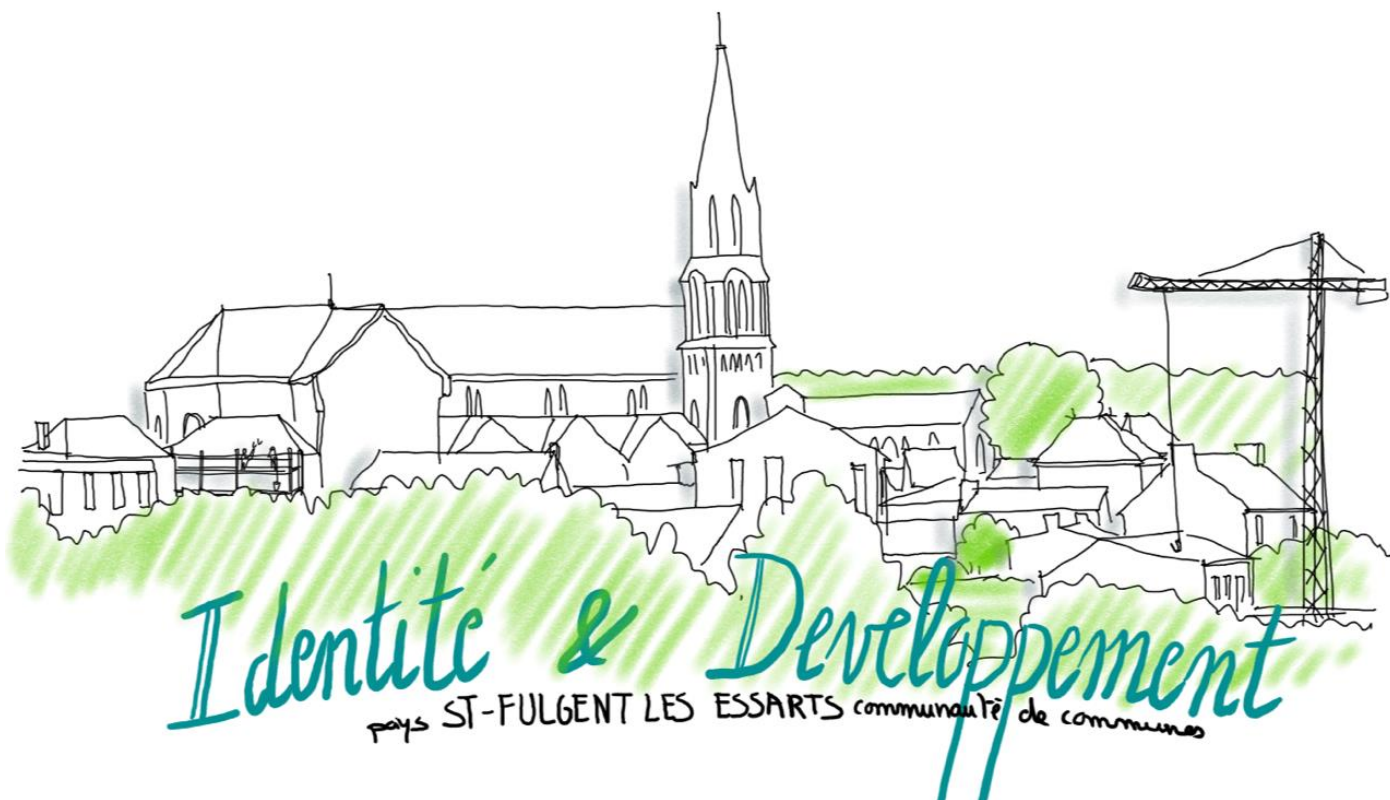 Identité & Developpement
pays ST-FULGENT LES ESSARTS communauté de communes